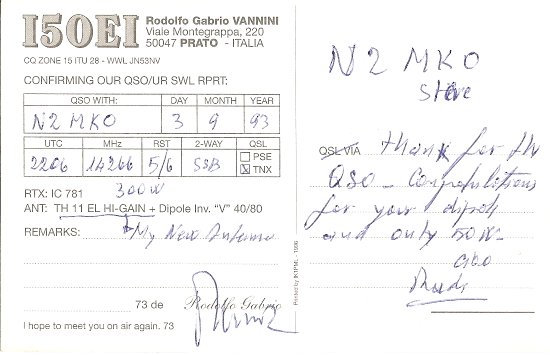 I5OEI
Rodolfo Gabrio VANNINI
Viale Montegrappa, 220
50047 PRATO - ITALIA
CQ ZONE 15 ITU 28 - WWL JN53NV
CONFIRMING OUR QSO/UR SWL RPRT:
QSO WITH: DAY MONTH YEAR
N2MKO 3 9 93
UTC MHz RST 2-WAY QSL
2206 14266 5/6 SSB PSE
X TNX
RTX: IC 781 300W
ANT: TH 11 EL HI-GAIN + Dipole Inv. "V" 40/80
REMARKS: My New Antenna
73 de Rodolfo Gabrio
I hope to meet you on air again. 73
N2MKO
Steve
QSL VIA Thank for the
QSO - Congratulations
for your dipole
and only 50W-